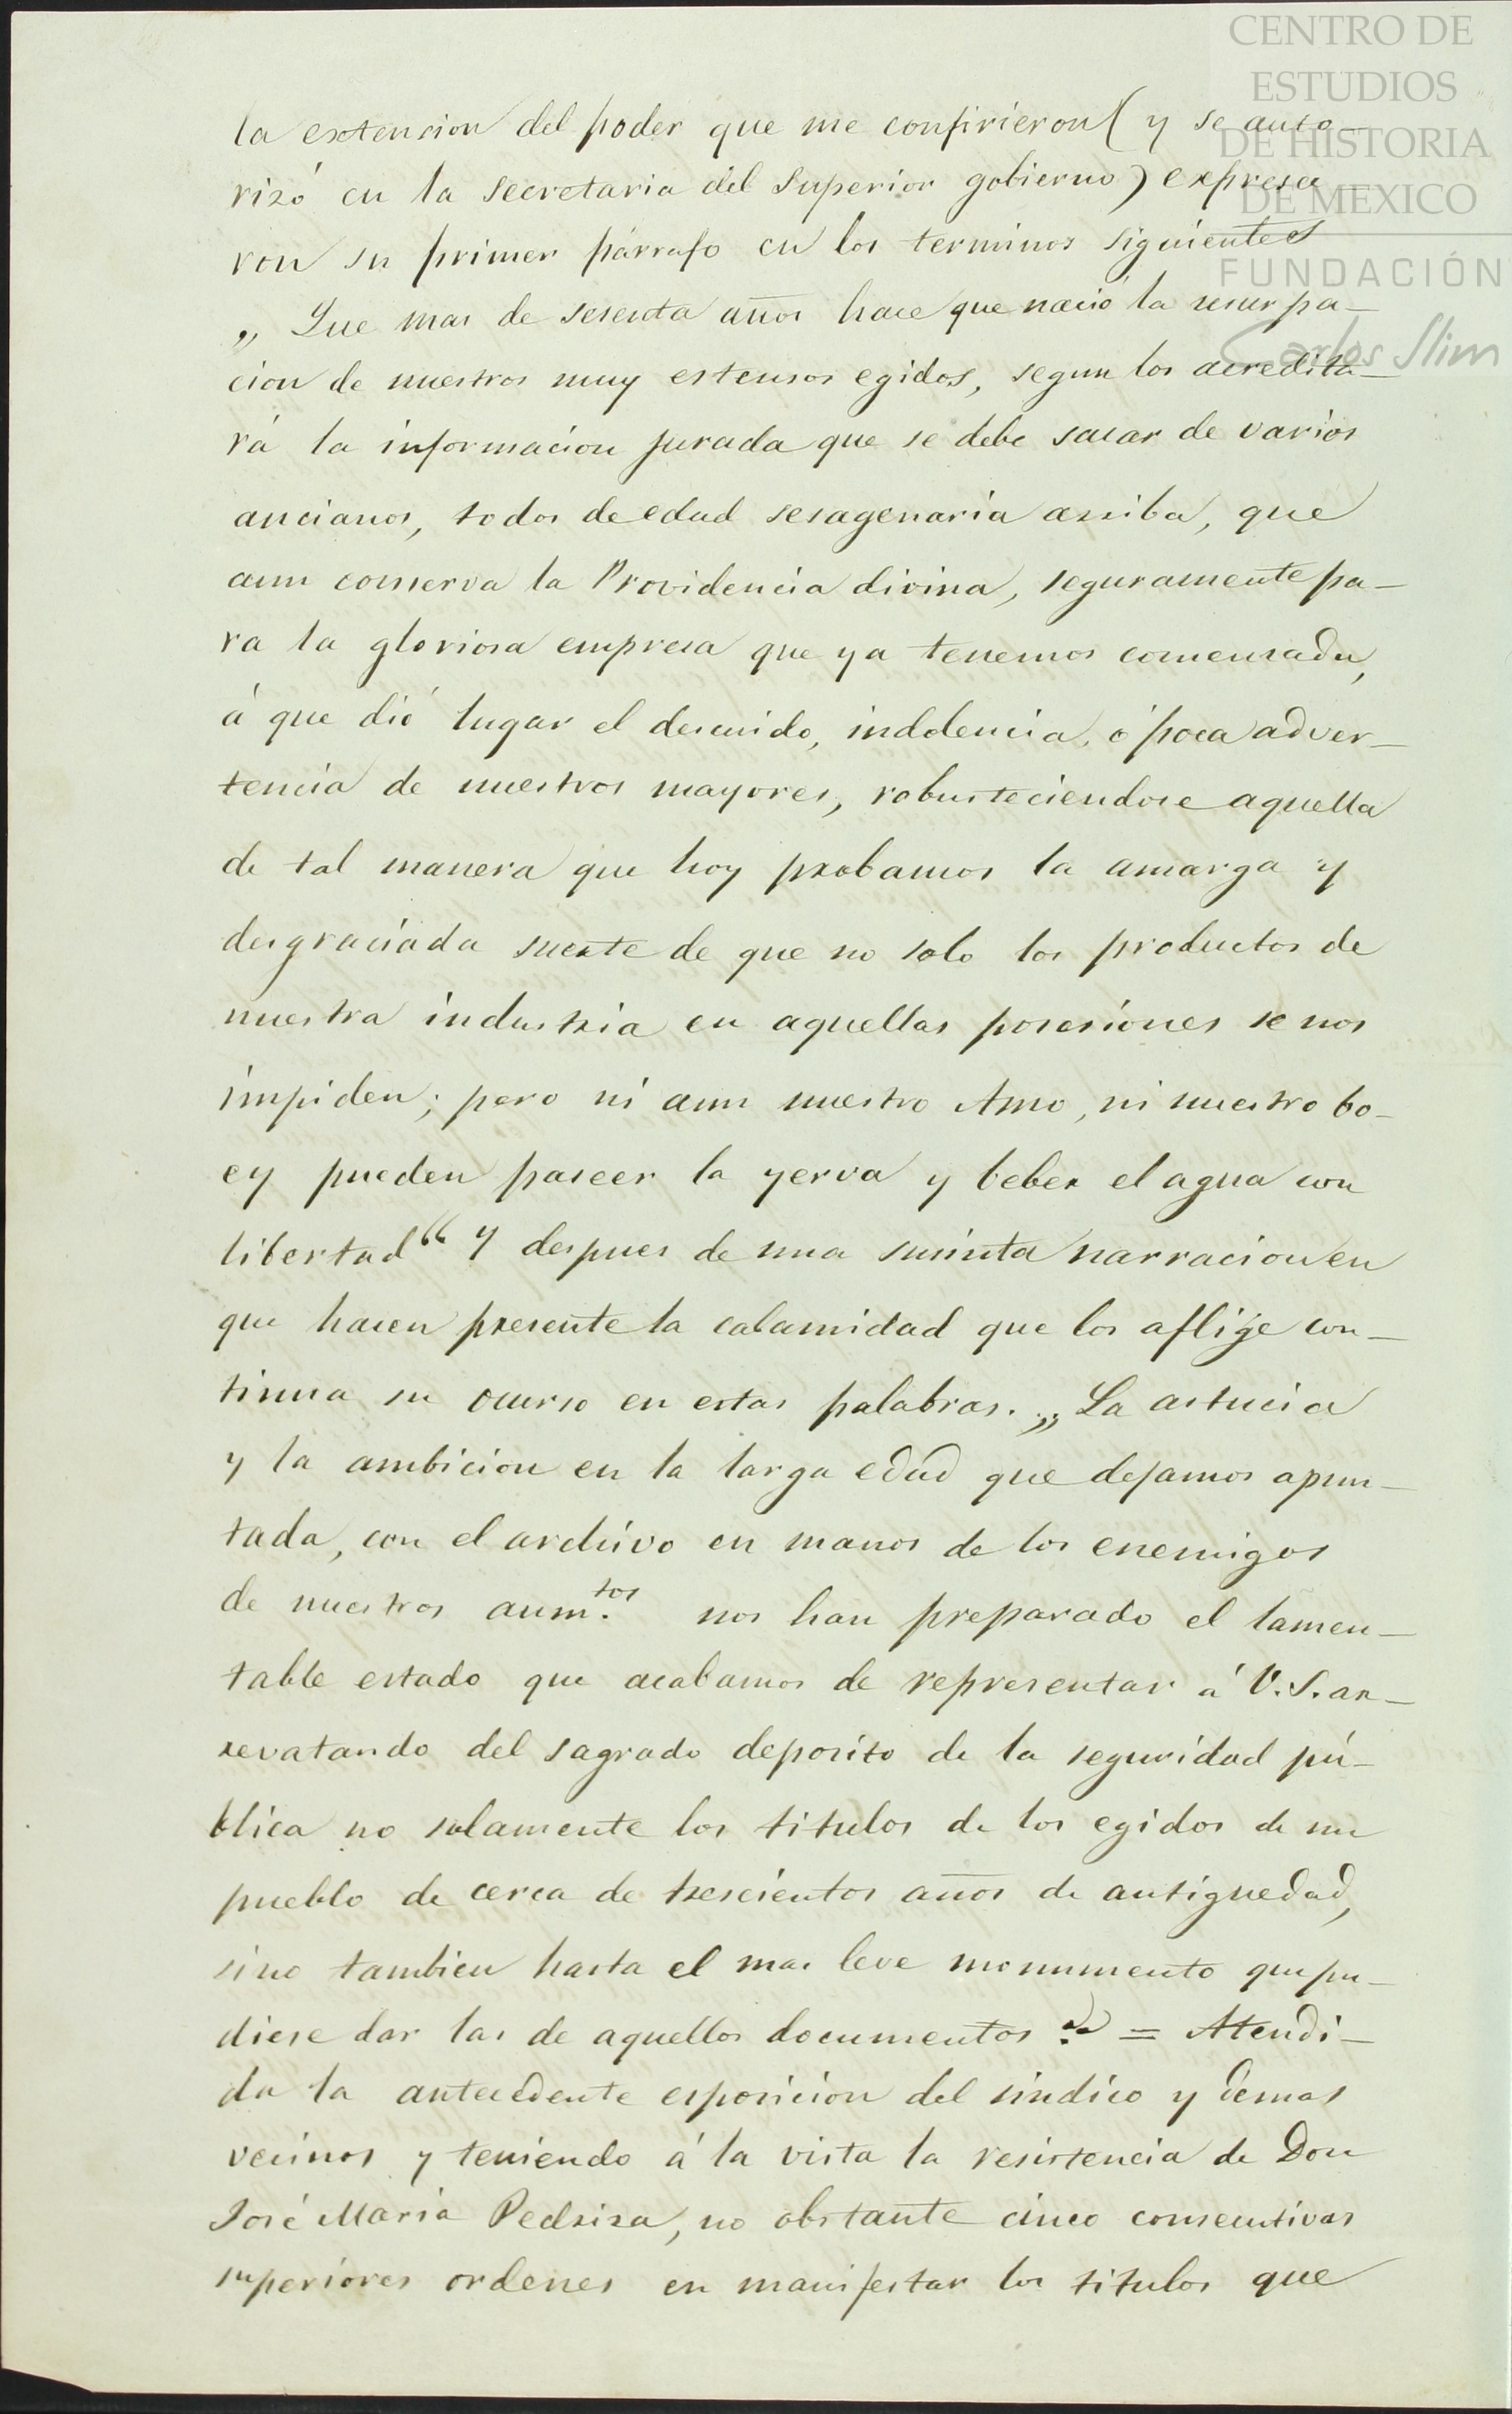 CENTRO DE
ESTUDIOS
DE HISTORIA
DE MEXICO
FUNDACIÓN
Carlos Slim
la extencion del poder que me confirieron (y se auto
rizó en la secretaria del Superior gobierno) expresa
ron su primer párrafo en los terminos siguientes
„ Que mas de sesenta años hace que nació la usurpa—
cion de nuestros muy estensos egidos, segun los acredita—
rá la informacion jurada que se debe sacar de varios
ancianos, todos de edad sesagenaria arriba, que
aun conserva la Providencia divina, seguramente pa—
ra la gloriosa empresa que ya tenemos comensada,
á que dió lugar el descuido, indolencia, ó poca adver—
tencia de nuestros mayores, robusteciendose aquella
de tal manera que hoy probamos la amarga y
desgraciada suerte de que no solo los productos de
nuestra industria en aquellas posesiones se nos
impiden; pero ni aun nuestro Amo, ni nuestro bo—
ey pueden paseer la yerva y beber el agua con
libertad“ Y despues de una susinta narracion en
que hacen presente la calamidad que los aflije con—
tinua su ocurso en estas palabras. „ La astucia
y la ambicion en la larga edad que dejamos apun—
tada, con el archivo en manos de los enemigos
de nuestros aum.tos nos han preparado el lamen—
table estado que acabamos de representar á V. S. ar—
revatando del sagrado deposito de la seguridad pú—
blica no solamente los titulos de los egidos de un
pueblo de cerca de trescientos años de antiguedad,
sino tambien hasta el mas leve monumento que pu—
diese dar las de aquellos documentos = Atendi—
da la antecedente esposicion del sindico y demas
vecinos y teniendo á la vista la resistencia de Don
José Maria Pedriza, no obstante cinco consecutivas
superiores ordenes en manifestar los titulos que